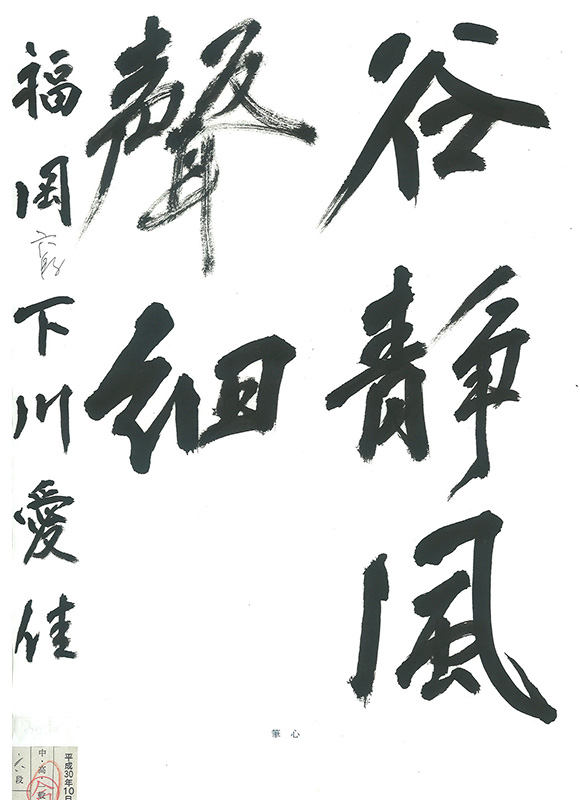 谷静風
聲細
福岡 六段 下川愛佳
心筆
平成30年10
中・高・般
六段